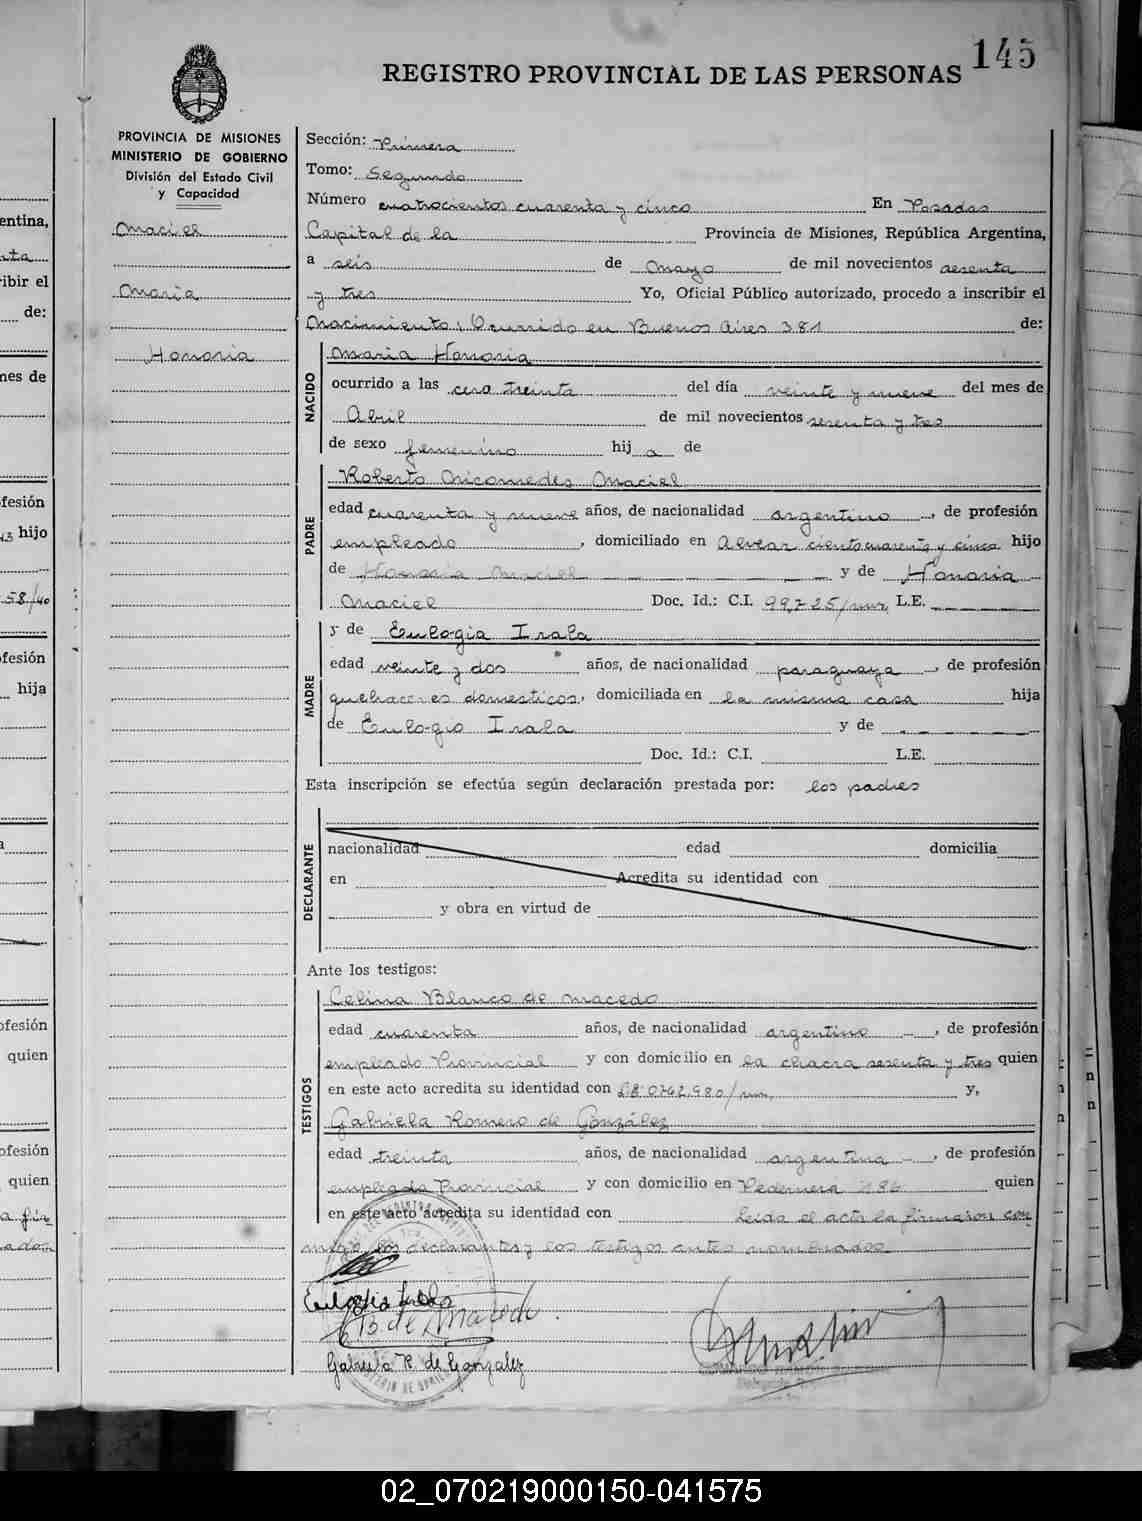 145
REGISTRO PROVINCIAL DE LAS PERSONAS
PROVINCIA DE MISIONES
MINISTERIO DE GOBIERNO
División del Estado Civil
y Capacidad
Maciel
Maria
Honoria
Sección: Primera
Tomo: Segundo
Número cuatrocientos cuarenta y cinco En Posadas
Capital de la Provincia de Misiones, República Argentina,
a seis de Mayo de mil novecientos sesenta
y tres Yo, Oficial Público autorizado, procedo a inscribir el
Nacimiento, Ocurrido en Buenos Aires 381 de:
NACIDO
Maria Honoria
ocurrido a las cero treinta del día veinte y nueve del mes de
Abril de mil novecientos sesenta y tres
de sexo femenino hij a de
PADRE
Roberto Nicomedes Maciel
edad cuarenta y nueve años, de nacionalidad argentino, de profesión
empleado, domiciliado en Alvear ciento cuarenta y cinco hijo
de Maciel y de Honoria
Maciel Doc. Id.: C.I. 99.725/ L.E.
MADRE
y de Eulogia Irala
edad veinte y dos años, de nacionalidad paraguaya, de profesión
quehaceres domesticos, domiciliada en la misma casa hija
de Eulogio Irala y de
Doc. Id.: C.I. L.E.
Esta inscripción se efectúa según declaración prestada por: los padres
DECLARANTE
nacionalidad edad domicilia
en Acredita su identidad con
y obra en virtud de
Ante los testigos:
TESTIGOS
Celina Blanco de Macedo
edad cuarenta años, de nacionalidad argentino, de profesión
empleado Provincial y con domicilio en la chacra sesenta y tres quien
en este acto acredita su identidad con y,
Gabriela Romero de González
edad treinta años, de nacionalidad argentina, de profesión
empleada Provincial y con domicilio en Pedernera 186 quien
en este acto acredita su identidad con Leida el acta la firmaron con
migo los declarantes y los testigos antes nombrados
Eulogia Irala
B de Macedo
Gabriela R. de Gonzalez
02_070219000150-041575